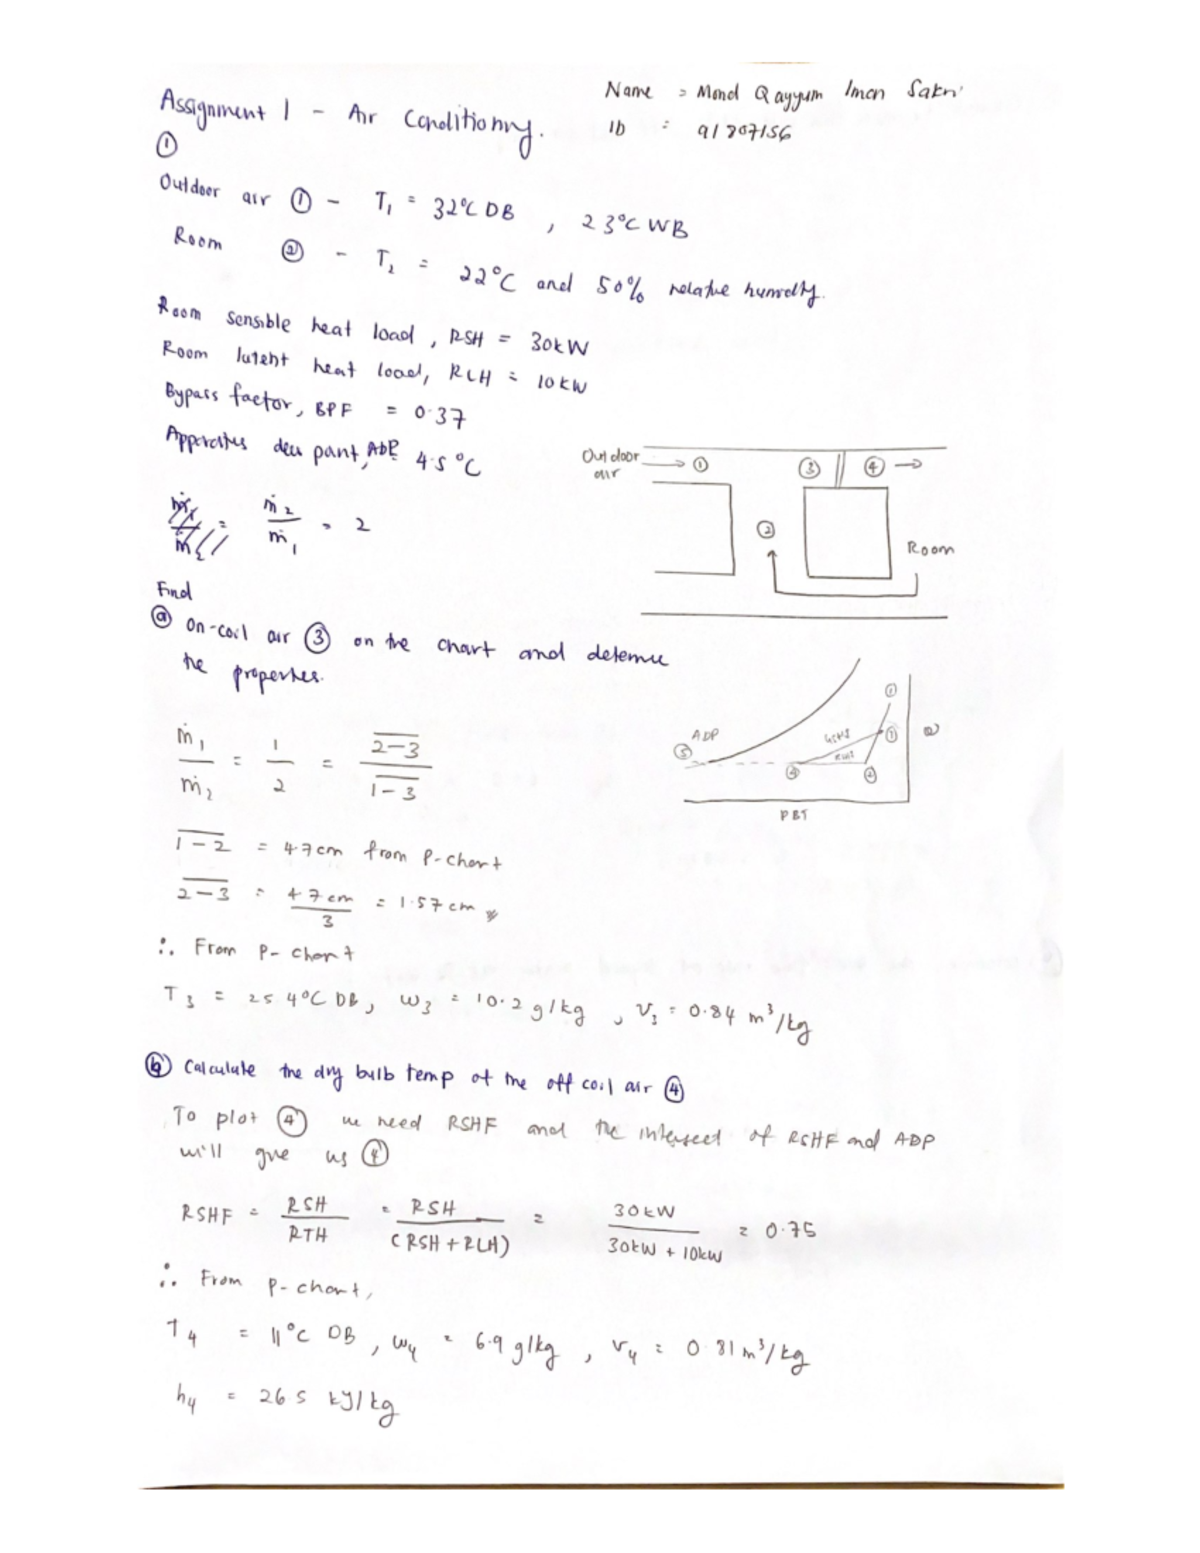 Name : Mohd Qayyum Iman Sakri
Assignment 1 - Air Conditioning.
ID : 91807156
①
Outdoor air ① - T₁ = 32°C DB , 23°C WB
Room ② - T₂ = 22°C and 50% relative humidity.
Room sensible heat load , RSH = 30kW
Room latent heat load, RLH = 10kW
Bypass factor, BPF = 0.37
Apparatus dew point, ADP 4.5°C
ṁ₂/ṁ₁ = 2
Outdoor air → ① ③ ④ →
②
Room
Find
ⓐ on-coil air ③ on the chart and determine
the properties.
ADP
⑤ ④ ③ ① ②
GSHF
RSHF
DBT
ṁ₁/ṁ₂ = 1/2 = 2-3/1-3
1-2 = 4.7cm from P-chart
2-3 = 4.7cm/3 = 1.57cm
∴ From P-chart
T₃ = 25.4°C DB, ω₃ = 10.2 g/kg , V₃ = 0.84 m³/kg
ⓑ Calculate the dry bulb temp of the off coil air ④
To plot ④ we need RSHF and the intersect of RSHF and ADP
will give us ④
RSHF = RSH/RTH = RSH/(RSH+RLH) = 30kW/30kW + 10kW = 0.75
∴ From P-chart,
T₄ = 11°C DB , ω₄ = 6.9 g/kg , V₄ = 0.81 m³/kg
h₄ = 26.5 kJ/kg